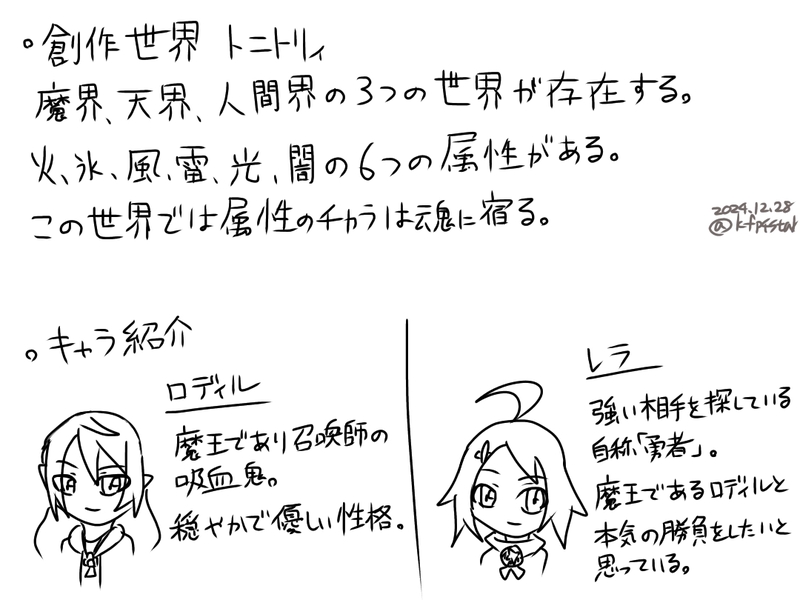 。創作世界 トニトリィ
魔界、天界、人間界の3つの世界が存在する。
火、氷、風、雷、光、闇の6つの属性がある。
この世界では属性のチカラは魂に宿る。
2024.12.28
。キャラ紹介
ロディル
魔王であり召喚師の
吸血鬼。
穏やかで優しい性格。
レラ
強い相手を探している
自称「勇者」。
魔王であるロディルと
本気の勝負をしたいと
思っている。